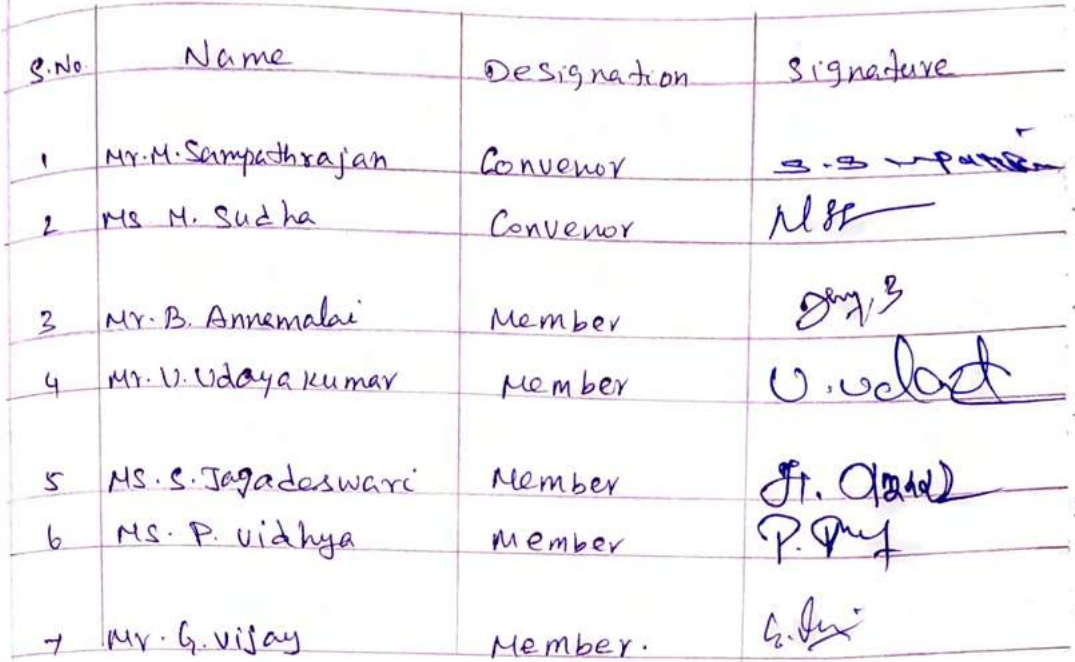 S.No. Name Designation Signature
1 Mr. M. Sampathrajan Convenor
2 Ms M. Sudha Convenor
3 Mr. B. Annamalai Member
4 Mr. V. Udaya Kumar Member
5 Ms. S. Jagadeswari Member
6 Ms. P. Vidhya Member
7 Mr. G. Vijay Member.